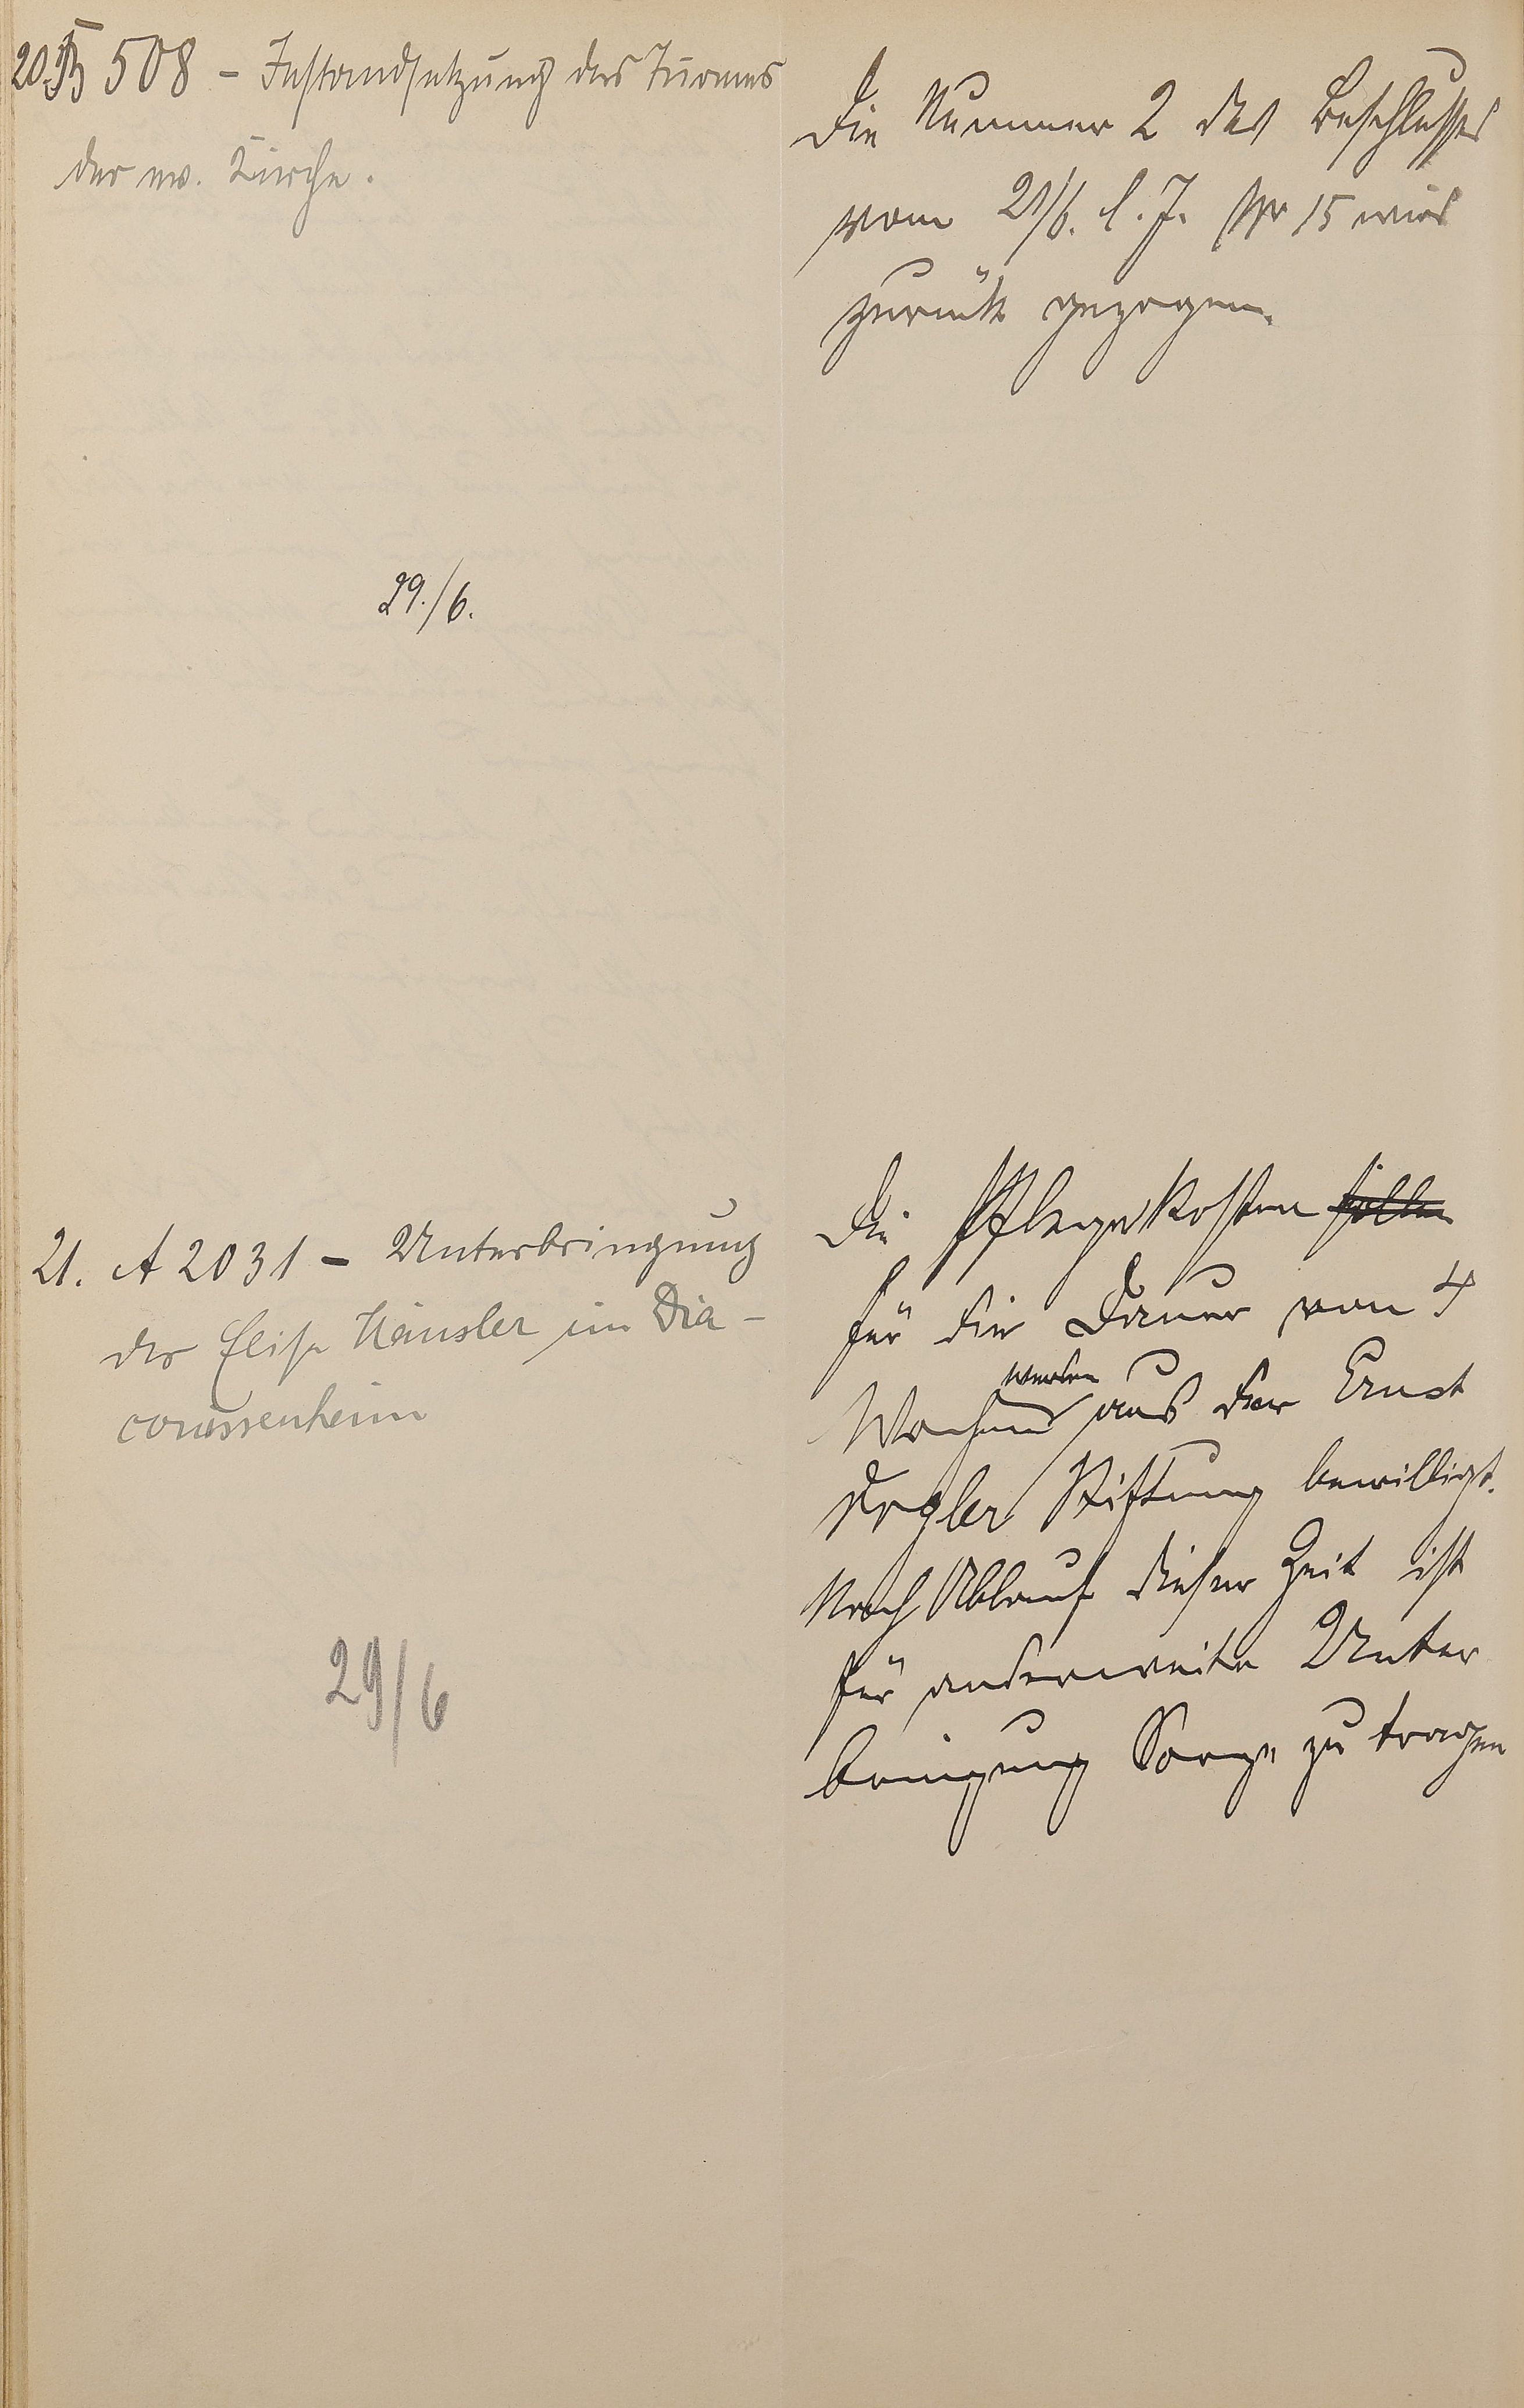 20. 508 - Instandsetzung des Turmes
der ev. Kirche.
Die Nummer 2 des Beschlusses
vom 21/6. l. J. Nr 15 wird
zurück gezogen.
29./6.
21. A 2031 - Unterbringung
der Elise Häusler im Dia-
conissenheim
Die Pflegekosten sollen
für die Dauer von 4
Wochen werden aus der Ernst
Vogler Stiftung bewilligt.
Nach Ablauf dieser Zeit ist
für anderweite Unter
bringung Sorge zu tragen
29/6